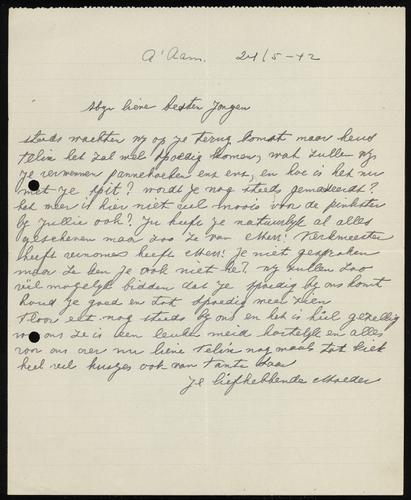 A'dam. 24/5-42
Mijn lieve besten Jongen
steeds wachten wy op je terug komst maar heus
telin het zal wel spoedig komen, wat zullen wy
je verwennen pannekoeken enz enz, en hoe is het nu
met je spit? wordt je nog steeds gemasseerd?
het weer is hier niet veel moois voor de pinkster
by jullie ook? Ju heeft je natuurlyk al alles
geschreven maar zoo ze van Mevr: Werkmeester
heeft vernomen heeft Mevr: je niet gesproken
maar ze ken je ook niet hé? wy zullen zoo
veel mogelyk bidden dat je spoedig by ons komt
houd je goed en tot spoedig weer zien
Floor eet nog steeds by ons en het is heel gezellig
voor ons ze is een leuke meid hartelyk en alles
voor ons over nu lieve telin nog maals tot kiek
heel veel kusjes ook van tante Saar
Je liefhebbende Moeder